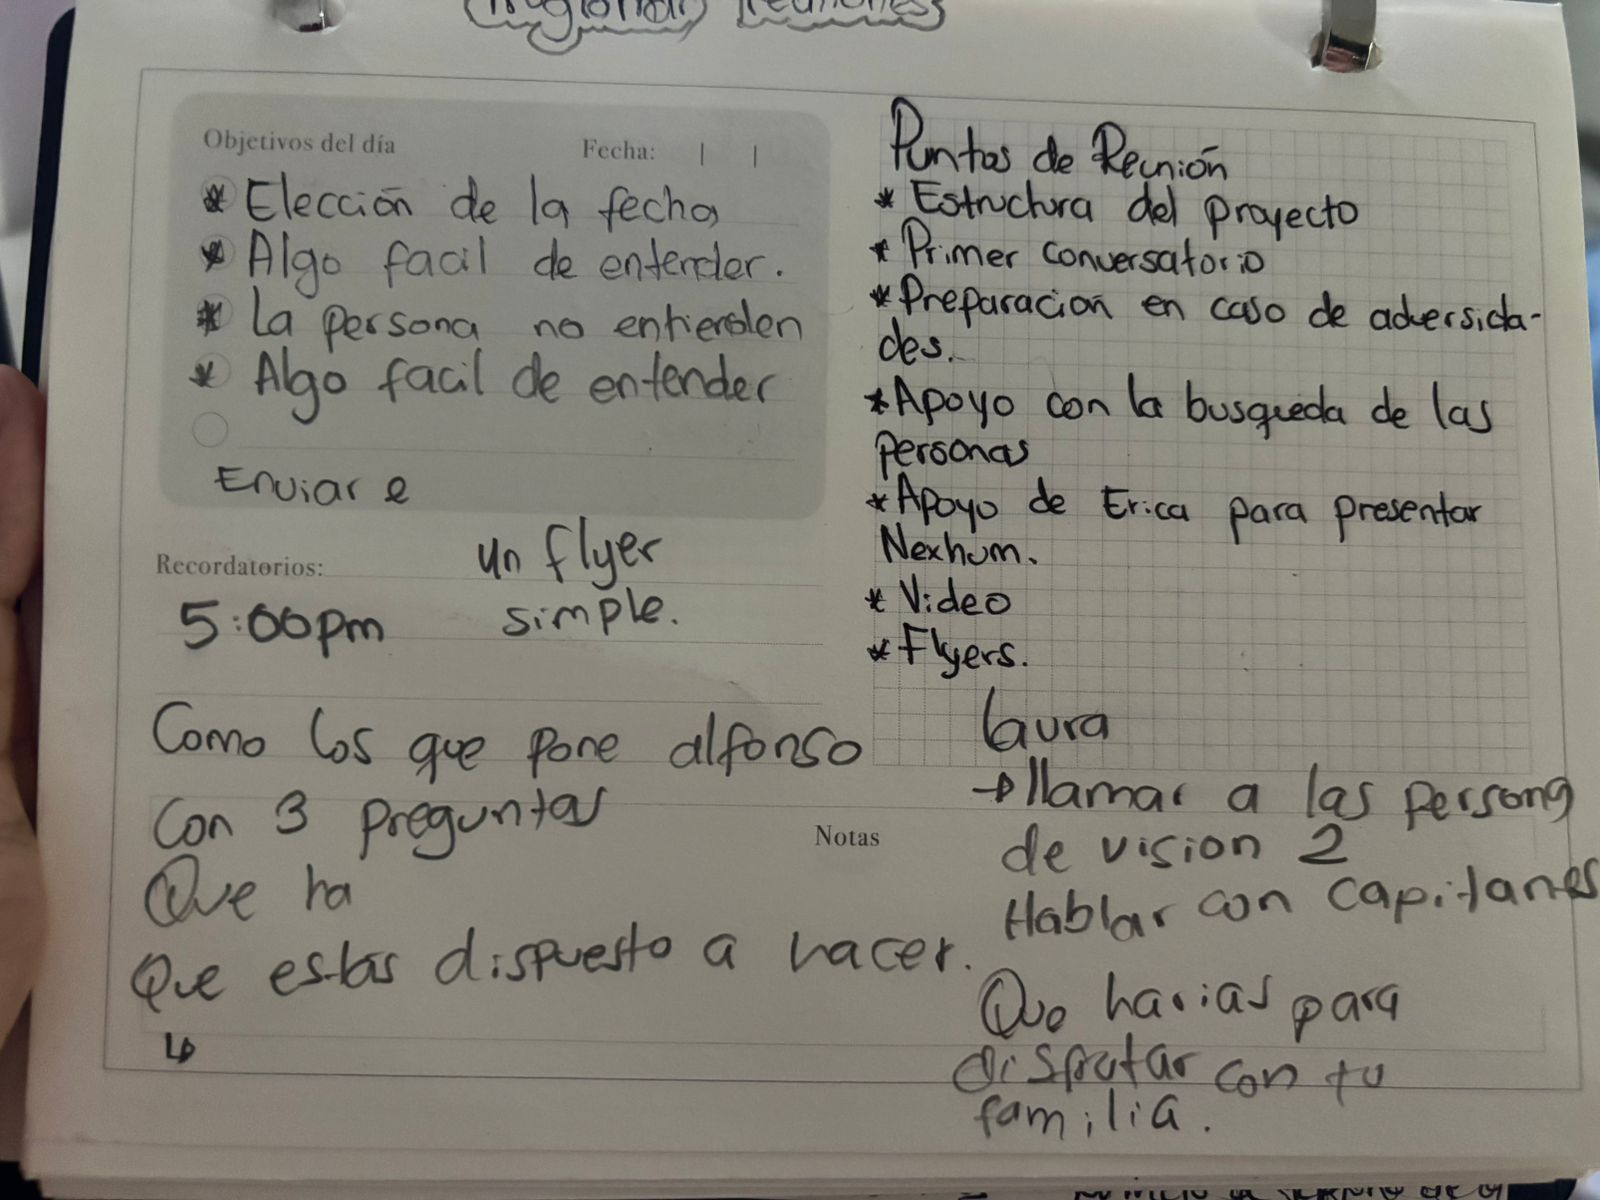 reuniones
Objetivos del día
Fecha: | |
* Elección de la fecha
* Algo facil de entender.
* la persona no entienden
* Algo facil de entender
Enviar e
un flyer
simple.
Recordatorios:
5:00pm
Como los que pone alfonso
Con 3 preguntas
Que ha
Que estás dispuesto a hacer.
Puntos de Reunión
* Estructura del proyecto
* Primer conversatorio
* Preparación en caso de adversida-
des.
* Apoyo con la busqueda de las
personas
* Apoyo de Erica para presentar
Nexhum.
* Video
* Flyers.
laura
→ llamar a las persona
de vision 2
Hablar con capitanes
Notas
Que harias para
disfrutar con tu
familia.